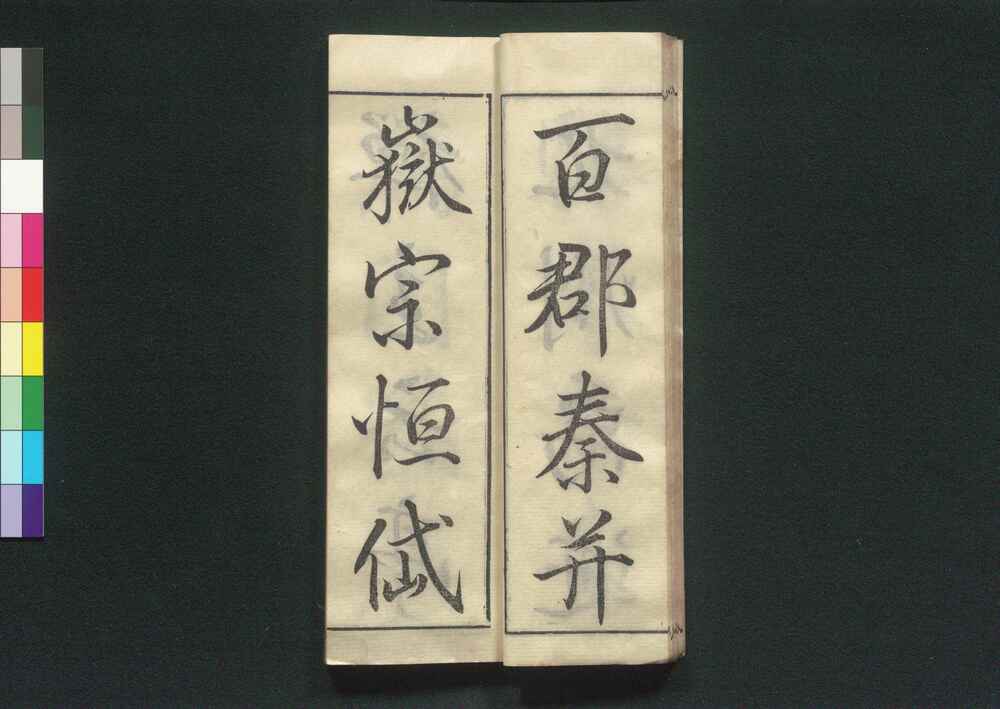 百郡秦并
嶽宗恒岱